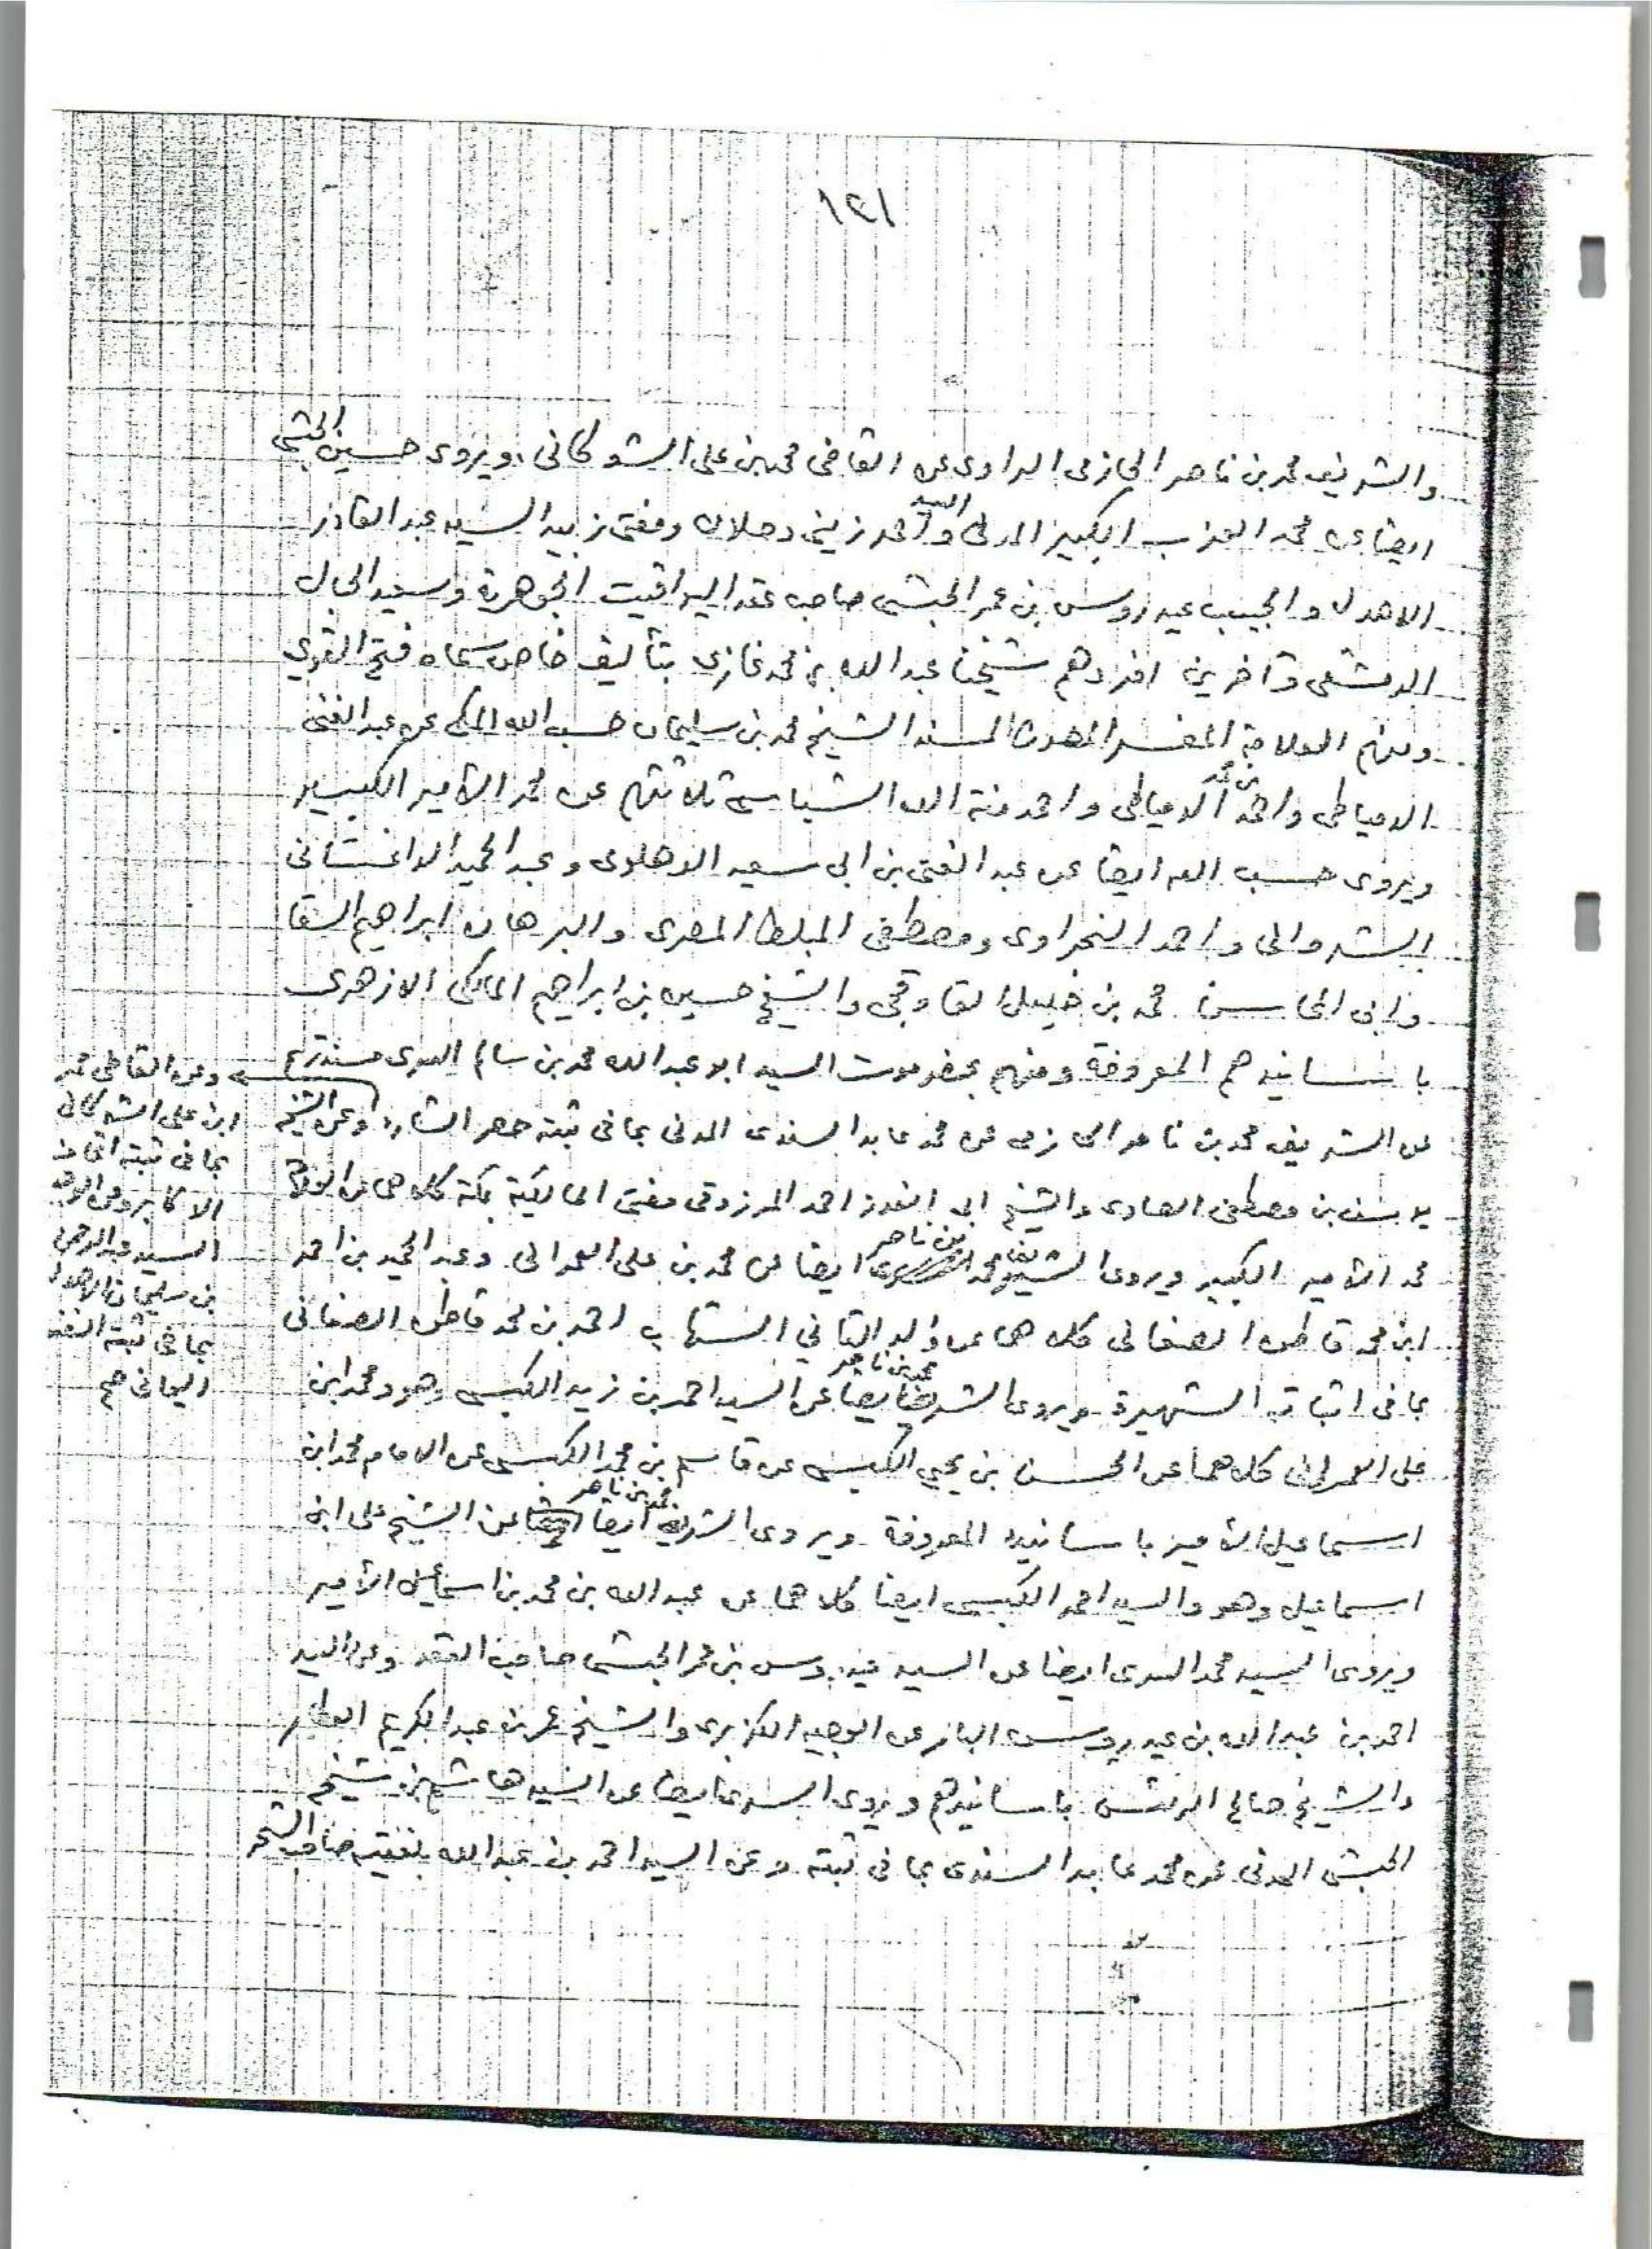 ١٢١
والشريف محمد بن ناصر الحازمى الراوى عن القاضى محمد بن على الشوكانى، ويروى حسين الحبشى
ايضا عن محمد العزب الكبير المدنى والسيد احمد زينى دحلان ومفتى زبيد السيد عبد القادر
الاهدل والحبيب عيدروس بن عمر الحبشى صاحب عقد اليواقيت الجوهرية وسعيد الحبال
الدمشقى وآخرين افردهم شيخنا عبد الله بن محمد غازى بتأليف خاص سماه فتح القوي
ومنهم العلامة المفسر المحدث المسند الشيخ محمد بن سليمان حسب الله المكى عن عبد الغنى
الدمياطى واحمد الدمياطى واحمد منة الله الشباسى ثلاثتهم عن محمد الأمير الكبير
ويروى حسب الله ايضا عن عبد الغنى بن ابى سعيد الدهلوى وعبد الحميد الداغستانى
الشروانى واحمد النحراوى ومصطفى المبلط المصرى والبرهان ابراهيم السقا
وابى المحاسن محمد بن خليل القاوقجى والشيخ حسين بن ابراهيم المالكى الازهرى
باسانيدهم المعروفة ومنهم بحضرموت السيد ابو عبد الله محمد بن سالم السرى مسند تريم
عن الشريف محمد بن ناصر الحازمى عن محمد عابد السندى المدنى بما فى ثبته حصر الشارد وعن الشيخ
يوسف بن مصطفى الصاوى والشيخ ابى الفوز احمد المرزوقى مفتى المالكية بمكة كلاهما عن
محمد الأمير الكبير ويروى الشريف محمد بن ناصر ايضا عن محمد بن على العمرانى وعبد الحميد بن احمد
ابن محمد قاطن الصنعانى كلاهما عن والد الثاني الشهاب احمد بن محمد قاطن الصنعانى
بما فى اثباته الشهيرة ويروى الشريف محمد بن ناصر ايضا عن السيد احمد بن زيد الكبسى وهو ومحمد ابن
على العمرانى كلاهما عن الحسن بن يحيى الكبسى عن قاسم بن محمد الكبسى عن الامام محمد ابن
اسماعيل الأمير باسانيده المعروفة ويروى الشريف محمد بن ناصر ايضا عن الشيخ على ابن
اسماعيل وهو والسيد احمد الكبسى ايضا كلاهما عن عبد الله بن محمد بن اسماعيل الأمير
ويروى السيد محمد السرى ايضا عن السيد عيدروس بن عمر الحبشى صاحب العقد وعن السيد
احمد بن عبد الله بن عيدروس البار عن الوجيه الكزبرى والشيخ عمر بن عبد الكريم العطار
والشيخ صالح الريس باسانيدهم ويروى السرى ايضا عن السيد هاشم بن شيخ
الحبشى المدنى عن محمد عابد السندى بما فى ثبته وعن السيد احمد بن عبد الله بلفقيه صاحب الشحر
وعن القاضى محمد
ابن على الشوكانى
بما فى ثبته اتحاف
الاكابر وعن الوجيه
السيد عبد الرحمن
بن سليمان الاهدل
بما فى ثبته النفس
اليمانى صح